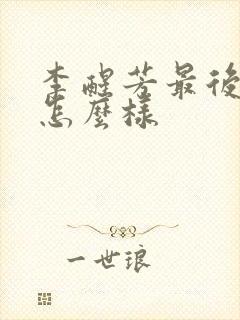 李醒芳最後
怎麼樣
一世琅